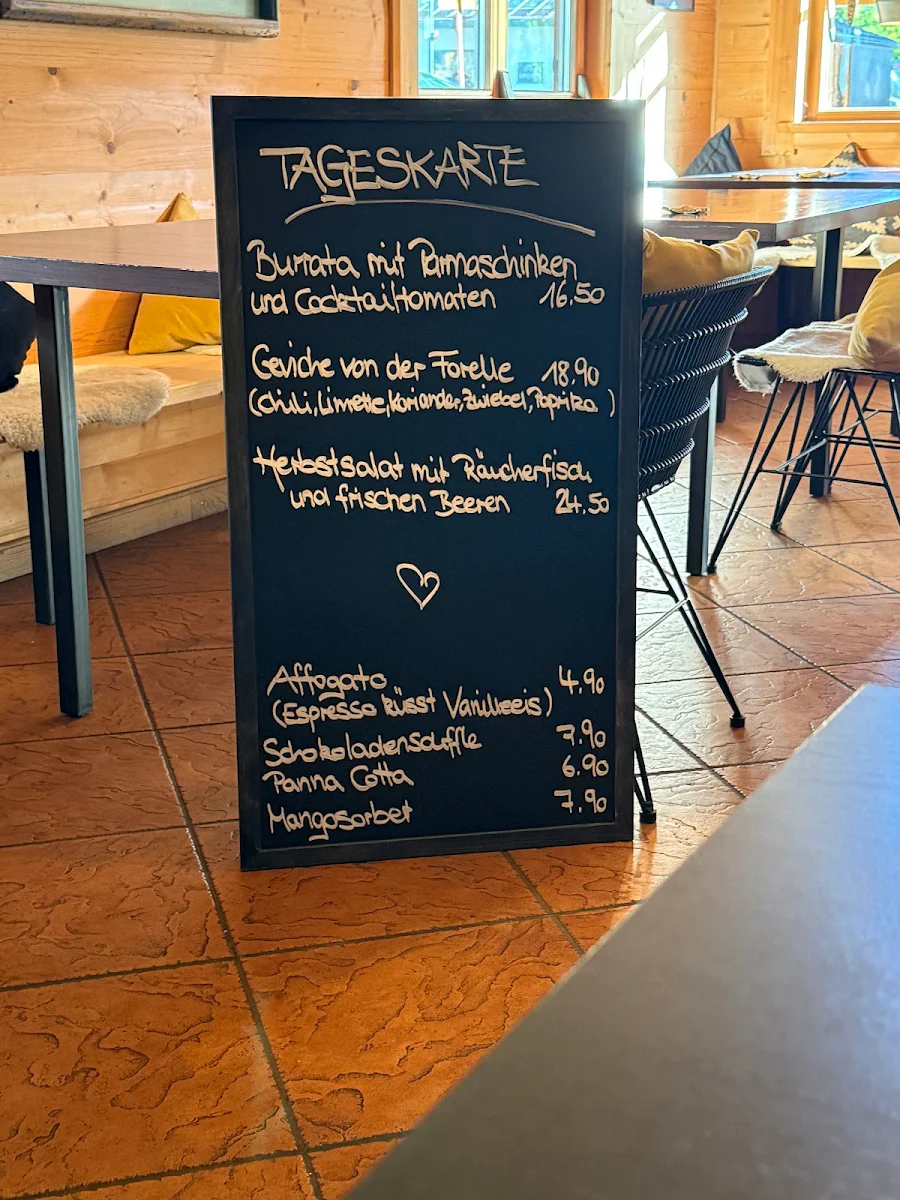 TAGESKARTE
Burrata mit Parmaschinken
und Cocktailtomaten 16.50
Ceviche von der Forelle 18,90
(Chili, Limette, Koriander, Zwiebel, Paprika)
Herbstsalat mit Räucherfisch
und frischen Beeren 24.50
Affogato 4.90
(Espresso küsst Vanilleeis)
Schokoladensouffle 7.90
Panna Cotta 6.90
Mangosorbet 7.90